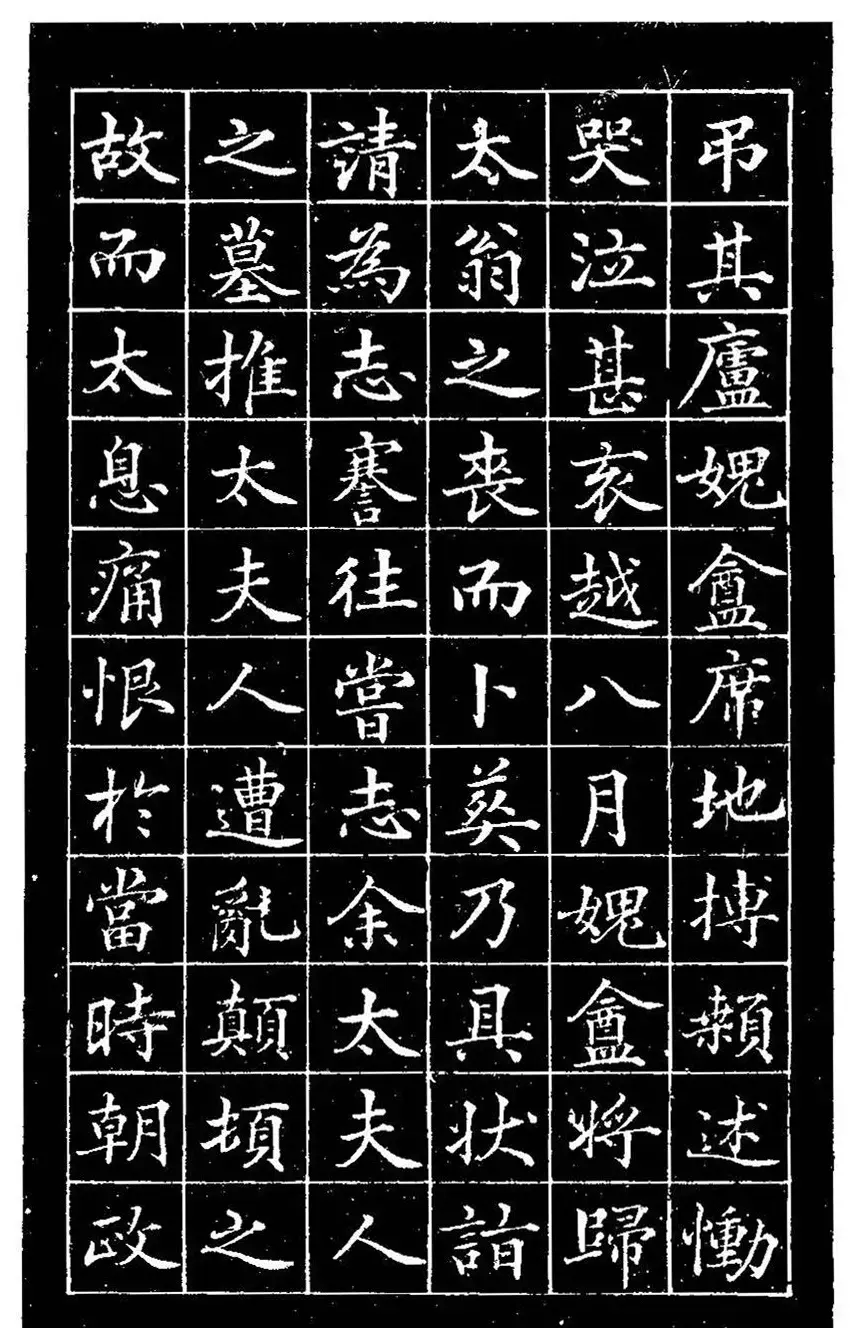 吊其廬媿盦席地搏顙述慟
哭泣甚哀越八月媿盦將歸
太翁之喪而卜葬乃具狀詣
請為志謇往嘗志余太夫人
之墓推太夫人遭亂顛頓之
故而太息痛恨於當時朝政